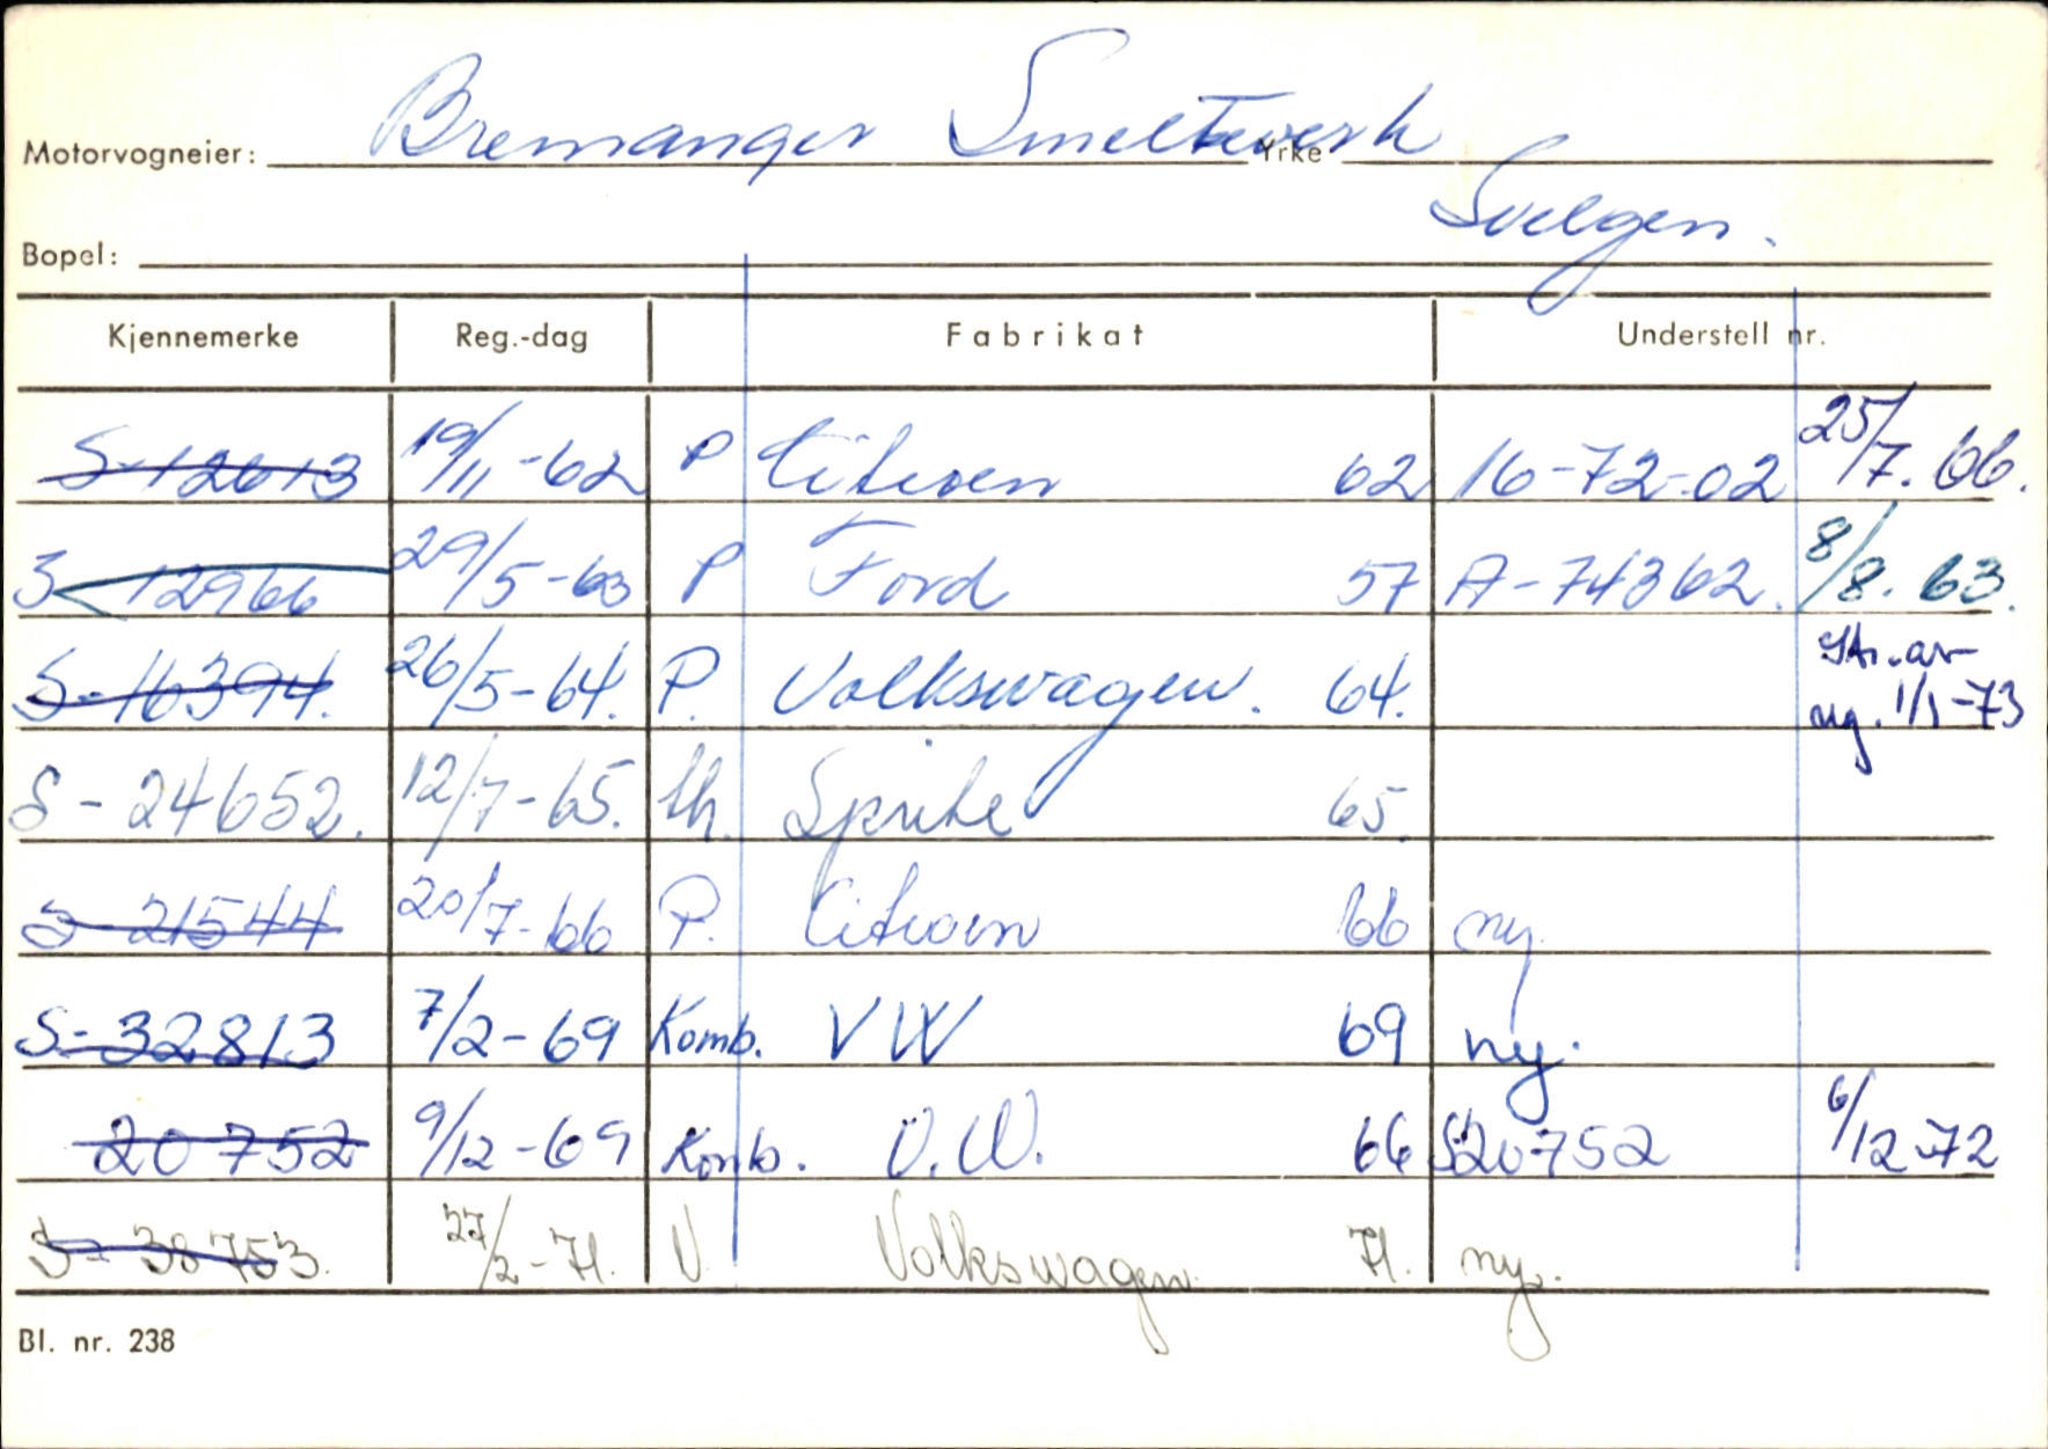 Bremanger Smelteverk
Motorvogneier: Yrke
Svelgen.
Bopel:
Kjennemerke Reg.-dag Fabrikat Understell nr.
S-12613 19/11-62 P Citroen 62 16-72-02 25/7.66.
S 12966 29/5-63 P Ford 57 A-74362. 8/8.63.
S-16394. 26/5-64. P. Volkswagen. 64. Str. av reg. 1/1-73
S-24652. 12/7-65. th. Sprite 65.
S-21544 20/7-66 P. Citroen 66 ny.
S-32813 7/2-69 Komb. VW 69 ny.
20752 9/12-69 Komb. V.W. 66 S20752 6/12-72
S-38753. 27/2-71. V. Volkswagen. 71. ny.
Bl. nr. 238